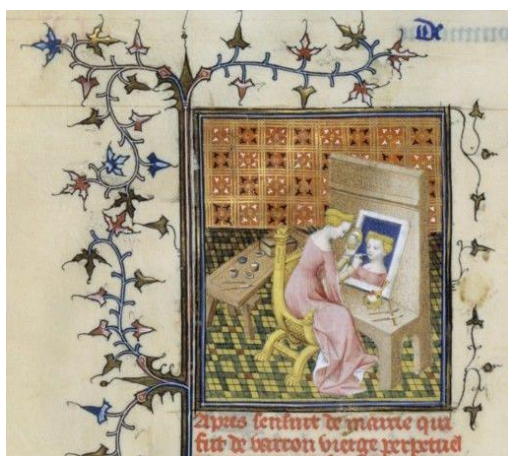 De
Apres senſuit de marcie qui
fut de varron vierge perpetuel